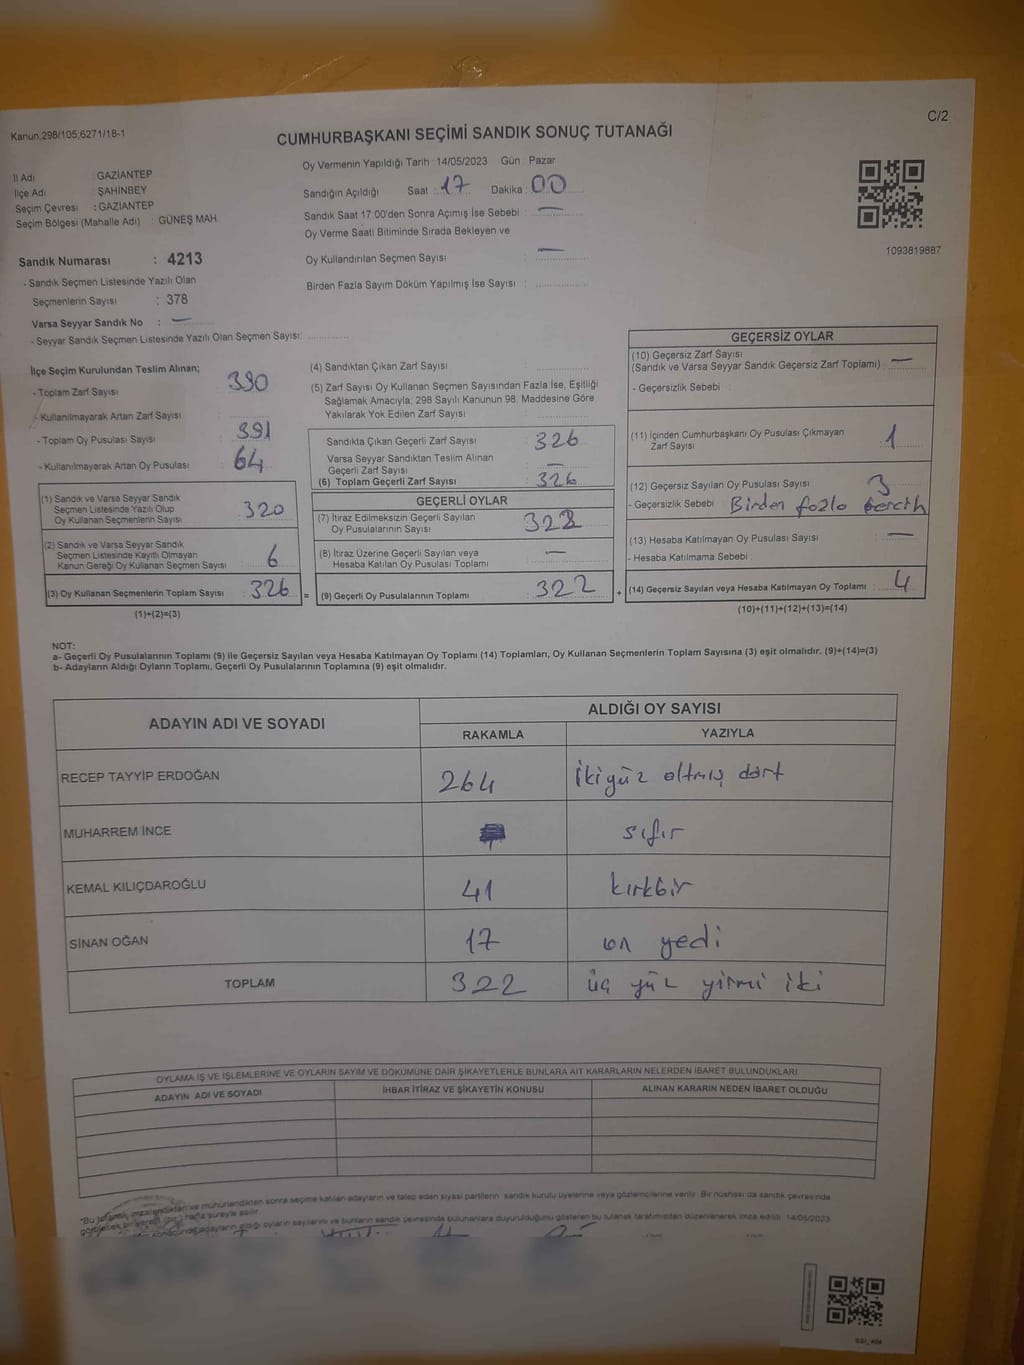 Kanun:298/105,6271/18-1
C/2
CUMHURBAŞKANI SEÇİMİ SANDIK SONUÇ TUTANAĞI
İl Adı : GAZİANTEP
İlçe Adı : ŞAHİNBEY
Seçim Çevresi : GAZİANTEP
Seçim Bölgesi (Mahalle Adı) : GÜNEŞ MAH.
Oy Vermenin Yapıldığı Tarih : 14/05/2023 Gün : Pazar
Sandığın Açıldığı Saat : 17 Dakika : 00
Sandık Saat 17:00'den Sonra Açımış İse Sebebi : —
Oy Verme Saati Bitiminde Sırada Bekleyen ve
Oy Kullandırılan Seçmen Sayısı : —
Birden Fazla Sayım Döküm Yapılmış İse Sayısı :
1093819887
Sandık Numarası : 4213
- Sandık Seçmen Listesinde Yazılı Olan
Seçmenlerin Sayısı : 378
Varsa Seyyar Sandık No : —
- Seyyar Sandık Seçmen Listesinde Yazılı Olan Seçmen Sayısı:
İlçe Seçim Kurulundan Teslim Alınan;
- Toplam Zarf Sayısı 390
- Kullanılmayarak Artan Zarf Sayısı
- Toplam Oy Pusulası Sayısı 391
- Kullanılmayarak Artan Oy Pusulası 64
(1) Sandık ve Varsa Seyyar Sandık
Seçmen Listesinde Yazılı Olup
Oy Kullanan Seçmenlerin Sayısı 320
(2) Sandık ve Varsa Seyyar Sandık
Seçmen Listesinde Kayıtlı Olmayan
Kanun Gereği Oy Kullanan Seçmen Sayısı 6
(3) Oy Kullanan Seçmenlerin Toplam Sayısı : 326
(1)+(2)=(3)
(4) Sandıktan Çıkan Zarf Sayısı :
(5) Zarf Sayısı Oy Kullanan Seçmen Sayısından Fazla İse, Eşitliği
Sağlamak Amacıyla; 298 Sayılı Kanunun 98. Maddesine Göre
Yakılarak Yok Edilen Zarf Sayısı :
Sandıkta Çıkan Geçerli Zarf Sayısı : 326
Varsa Seyyar Sandıktan Teslim Alınan
Geçerli Zarf Sayısı : —
(6) Toplam Geçerli Zarf Sayısı : 326
GEÇERLİ OYLAR
(7) İtiraz Edilmeksizin Geçerli Sayılan
Oy Pusulalarının Sayısı : 322
(8) İtiraz Üzerine Geçerli Sayılan veya
Hesaba Katılan Oy Pusulası Toplamı : —
= (9) Geçerli Oy Pusulalarının Toplamı : 322
GEÇERSİZ OYLAR
(10) Geçersiz Zarf Sayısı
(Sandık ve Varsa Seyyar Sandık Geçersiz Zarf Toplamı) : —
- Geçersizlik Sebebi :
(11) İçinden Cumhurbaşkanı Oy Pusulası Çıkmayan
Zarf Sayısı : 1
(12) Geçersiz Sayılan Oy Pusulası Sayısı : 3
- Geçersizlik Sebebi : Birden fazla tercih
(13) Hesaba Katılmayan Oy Pusulası Sayısı : —
- Hesaba Katılmama Sebebi :
+ (14) Geçersiz Sayılan veya Hesaba Katılmayan Oy Toplamı : 4
(10)+(11)+(12)+(13)=(14)
NOT:
a- Geçerli Oy Pusulalarının Toplamı (9) ile Geçersiz Sayılan veya Hesaba Katılmayan Oy Toplamı (14) Toplamları, Oy Kullanan Seçmenlerin Toplam Sayısına (3) eşit olmalıdır. (9)+(14)=(3)
b- Adayların Aldığı Oyların Toplamı, Geçerli Oy Pusulalarının Toplamına (9) eşit olmalıdır.
ADAYIN ADI VE SOYADI
ALDIĞI OY SAYISI
RAKAMLA YAZIYLA
RECEP TAYYİP ERDOĞAN 264 İkiyüz altmış dört
MUHARREM İNCE sıfır
KEMAL KILIÇDAROĞLU 41 kırkbir
SİNAN OĞAN 17 on yedi
TOPLAM 322 üç yüz yirmi iki
OYLAMA İŞ VE İŞLEMLERİNE VE OYLARIN SAYIM VE DÖKÜMÜNE DAİR ŞİKAYETLERLE BUNLARA AİT KARARLARIN NELERDEN İBARET BULUNDUKLARI
ADAYIN ADI VE SOYADI İHBAR İTİRAZ VE ŞİKAYETİN KONUSU ALINAN KARARIN NEDEN İBARET OLDUĞU
imzalandıktan ve mühürlendikten sonra seçime katılan adayların ve talep eden siyasi partilerin sandık kurulu üyelerine veya gözlemcilerine verilir. Bir nüshası da sandık çevresinde
hafta süreyle asılır.
adayların aldığı oyların sayılarını ve bunların sandık çevresinde bulunanlara duyurulduğunu gösteren bu tutanak tarafımızdan düzenlenerek imza edildi. 14/05/2023